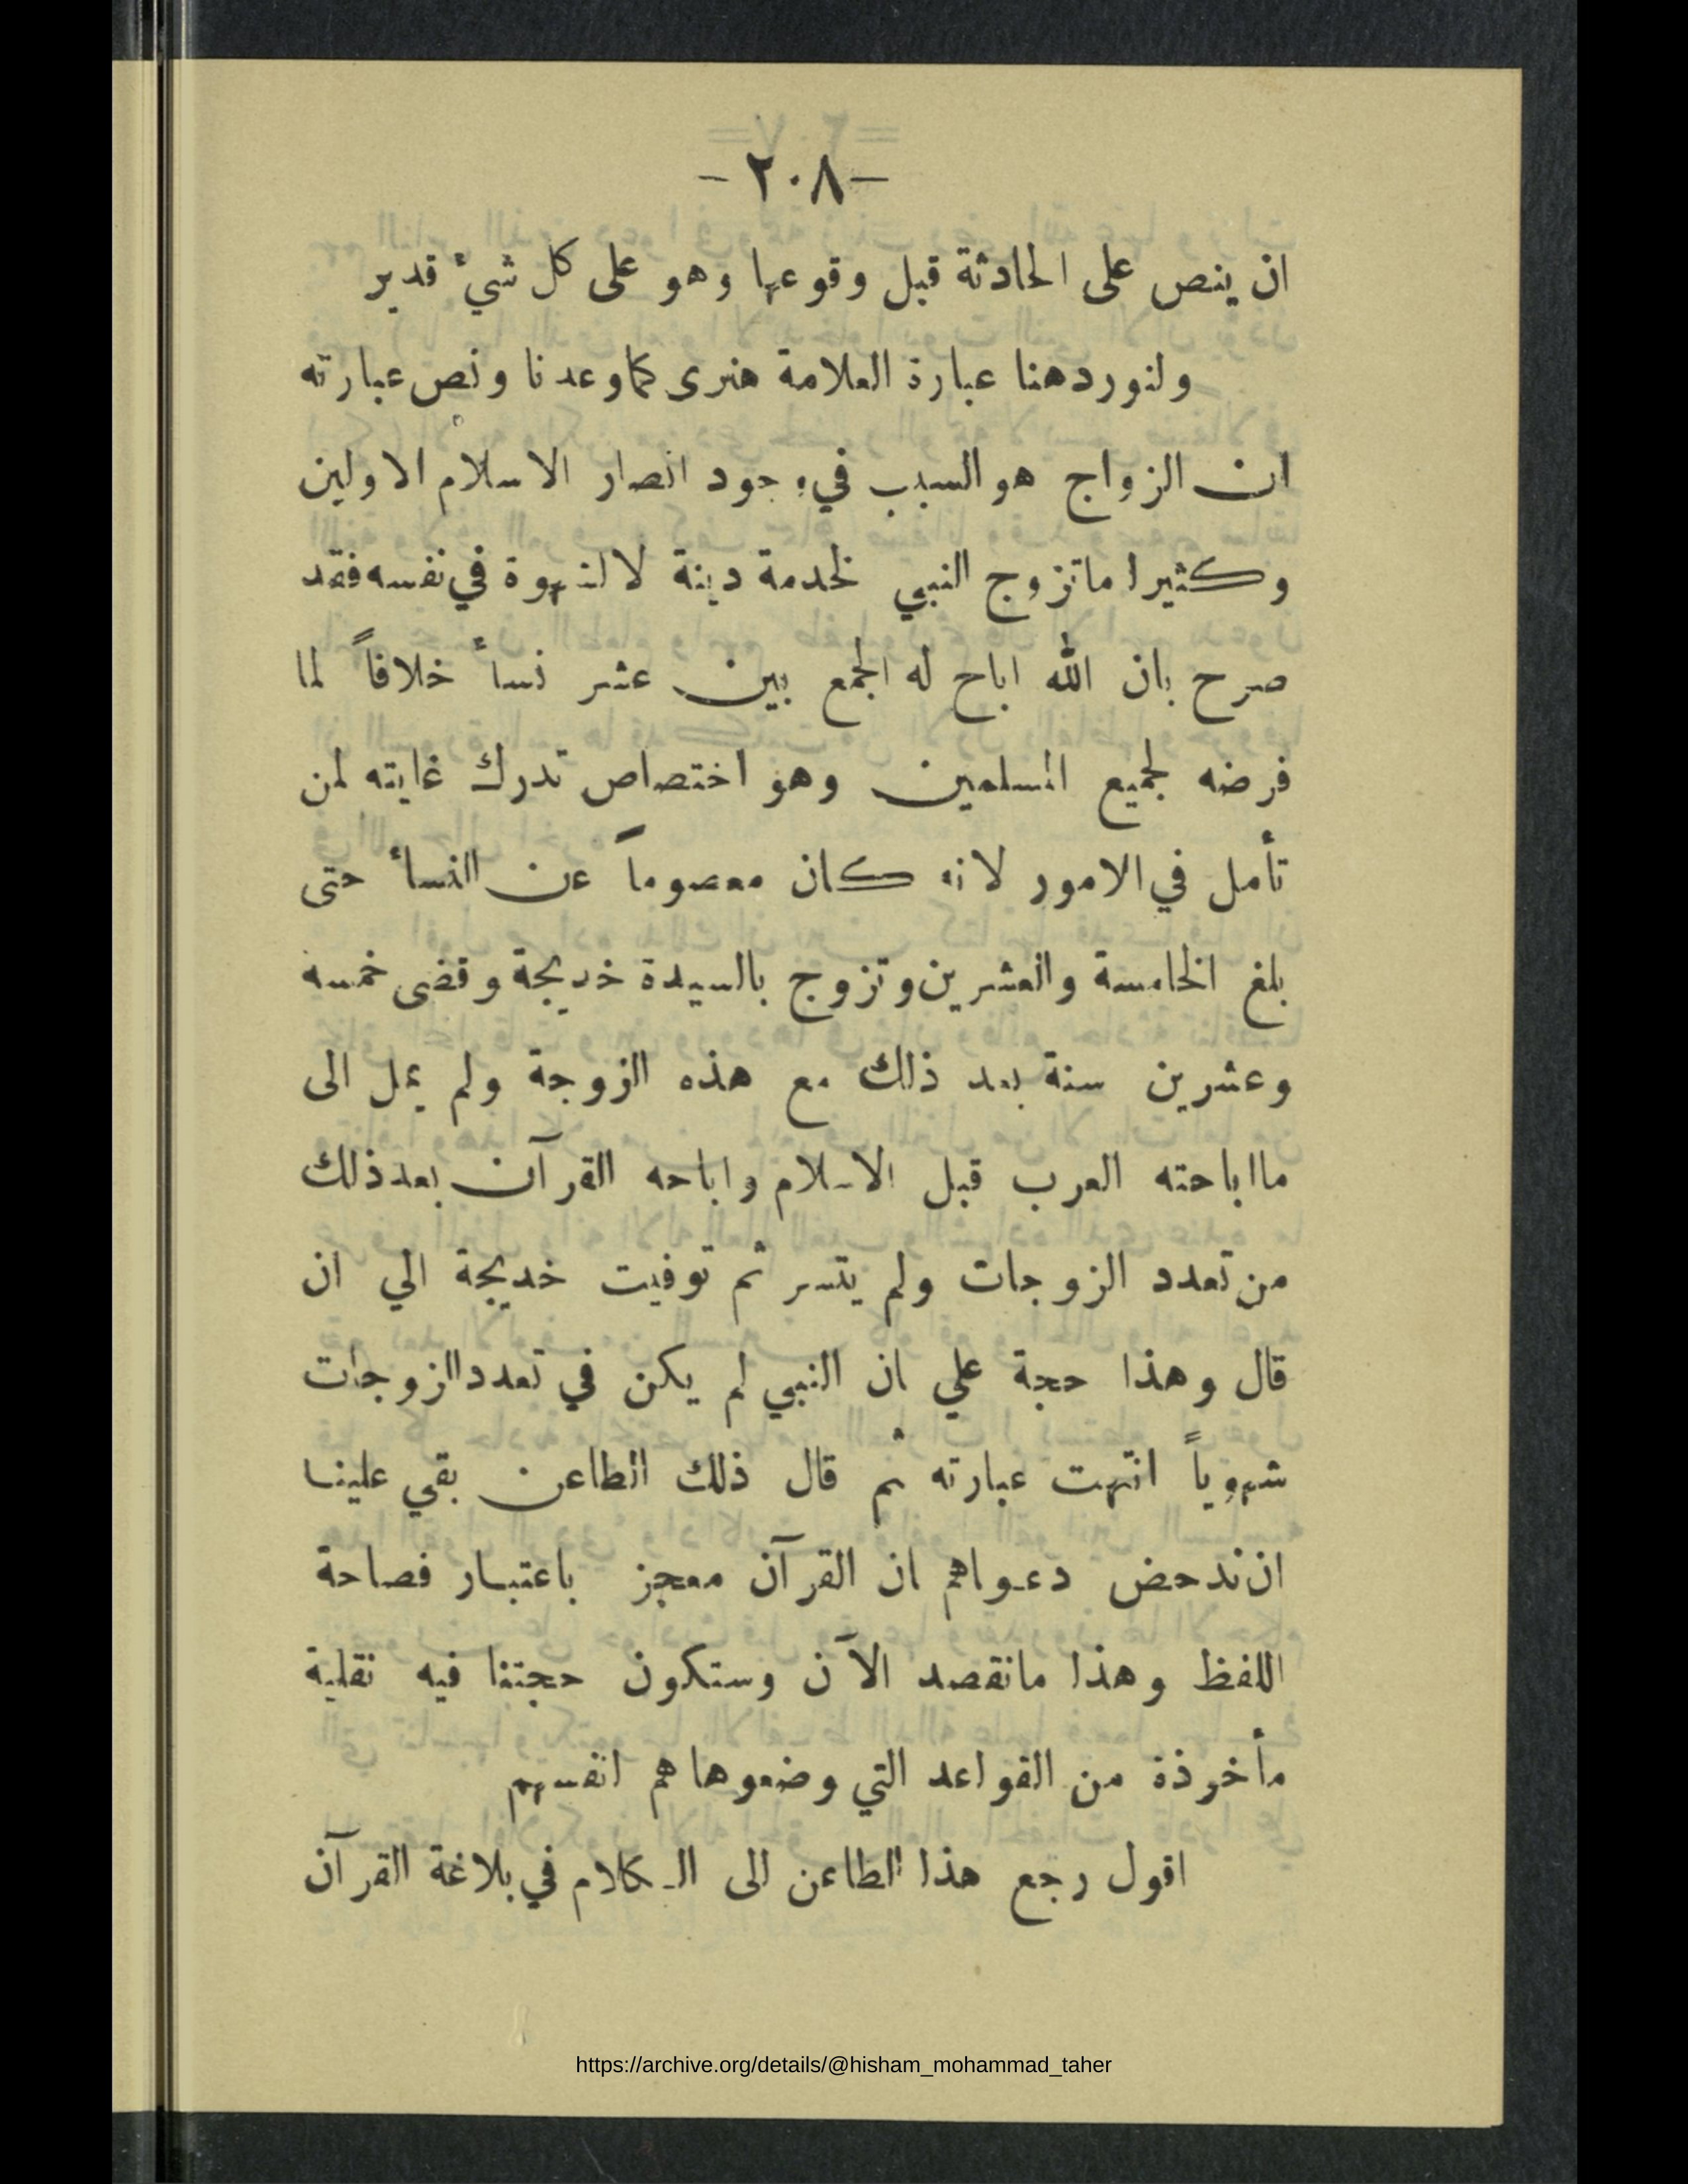 -٢٠٨-
ان ينص على الحادثة قبل وقوعها وهو على كل شيء قدير
ولنورد هنا عبارة العلامة هنرى كما وعدنا ونص عبارته
ان الزواج هو السبب في وجود انصار الاسلام الاولين
وكثيرا ما تزوج النبي لخدمة دينة لا لشهوة في نفسه فقد
صرح بان الله اباح له الجمع بين عشر نسأ خلافاً لما
فرضه لجميع المسلمين وهو اختصاص تدرك غايته لمن
تأمل في الامور لانه كان معصوماً عن النسأ حتى
بلغ الخامسة والعشرين وتزوج بالسيدة خديجة وقضى خمسه
وعشرين سنة بعد ذلك مع هذه الزوجة ولم يمل الى
ما اباحته العرب قبل الاسلام واباحه القرآن بعد ذلك
من تعدد الزوجات ولم يتسر ثم توفيت خديجة الي ان
قال وهذا حجة علي ان النبي لم يكن في تعدد الزوجات
شهوياً انتهت عبارته ثم قال ذلك الطاعن بقي علينا
ان ندحض دعواهم ان القرآن معجز باعتبار فصاحة
اللفظ وهذا ما نقصد الآن وستكون حجتنا فيه نقلية
مأخوذة من القواعد التي وضعوها هم انفسهم
اقول رجع هذا الطاعن الى الكلام في بلاغة القرآن
https://archive.org/details/@hisham_mohammad_taher